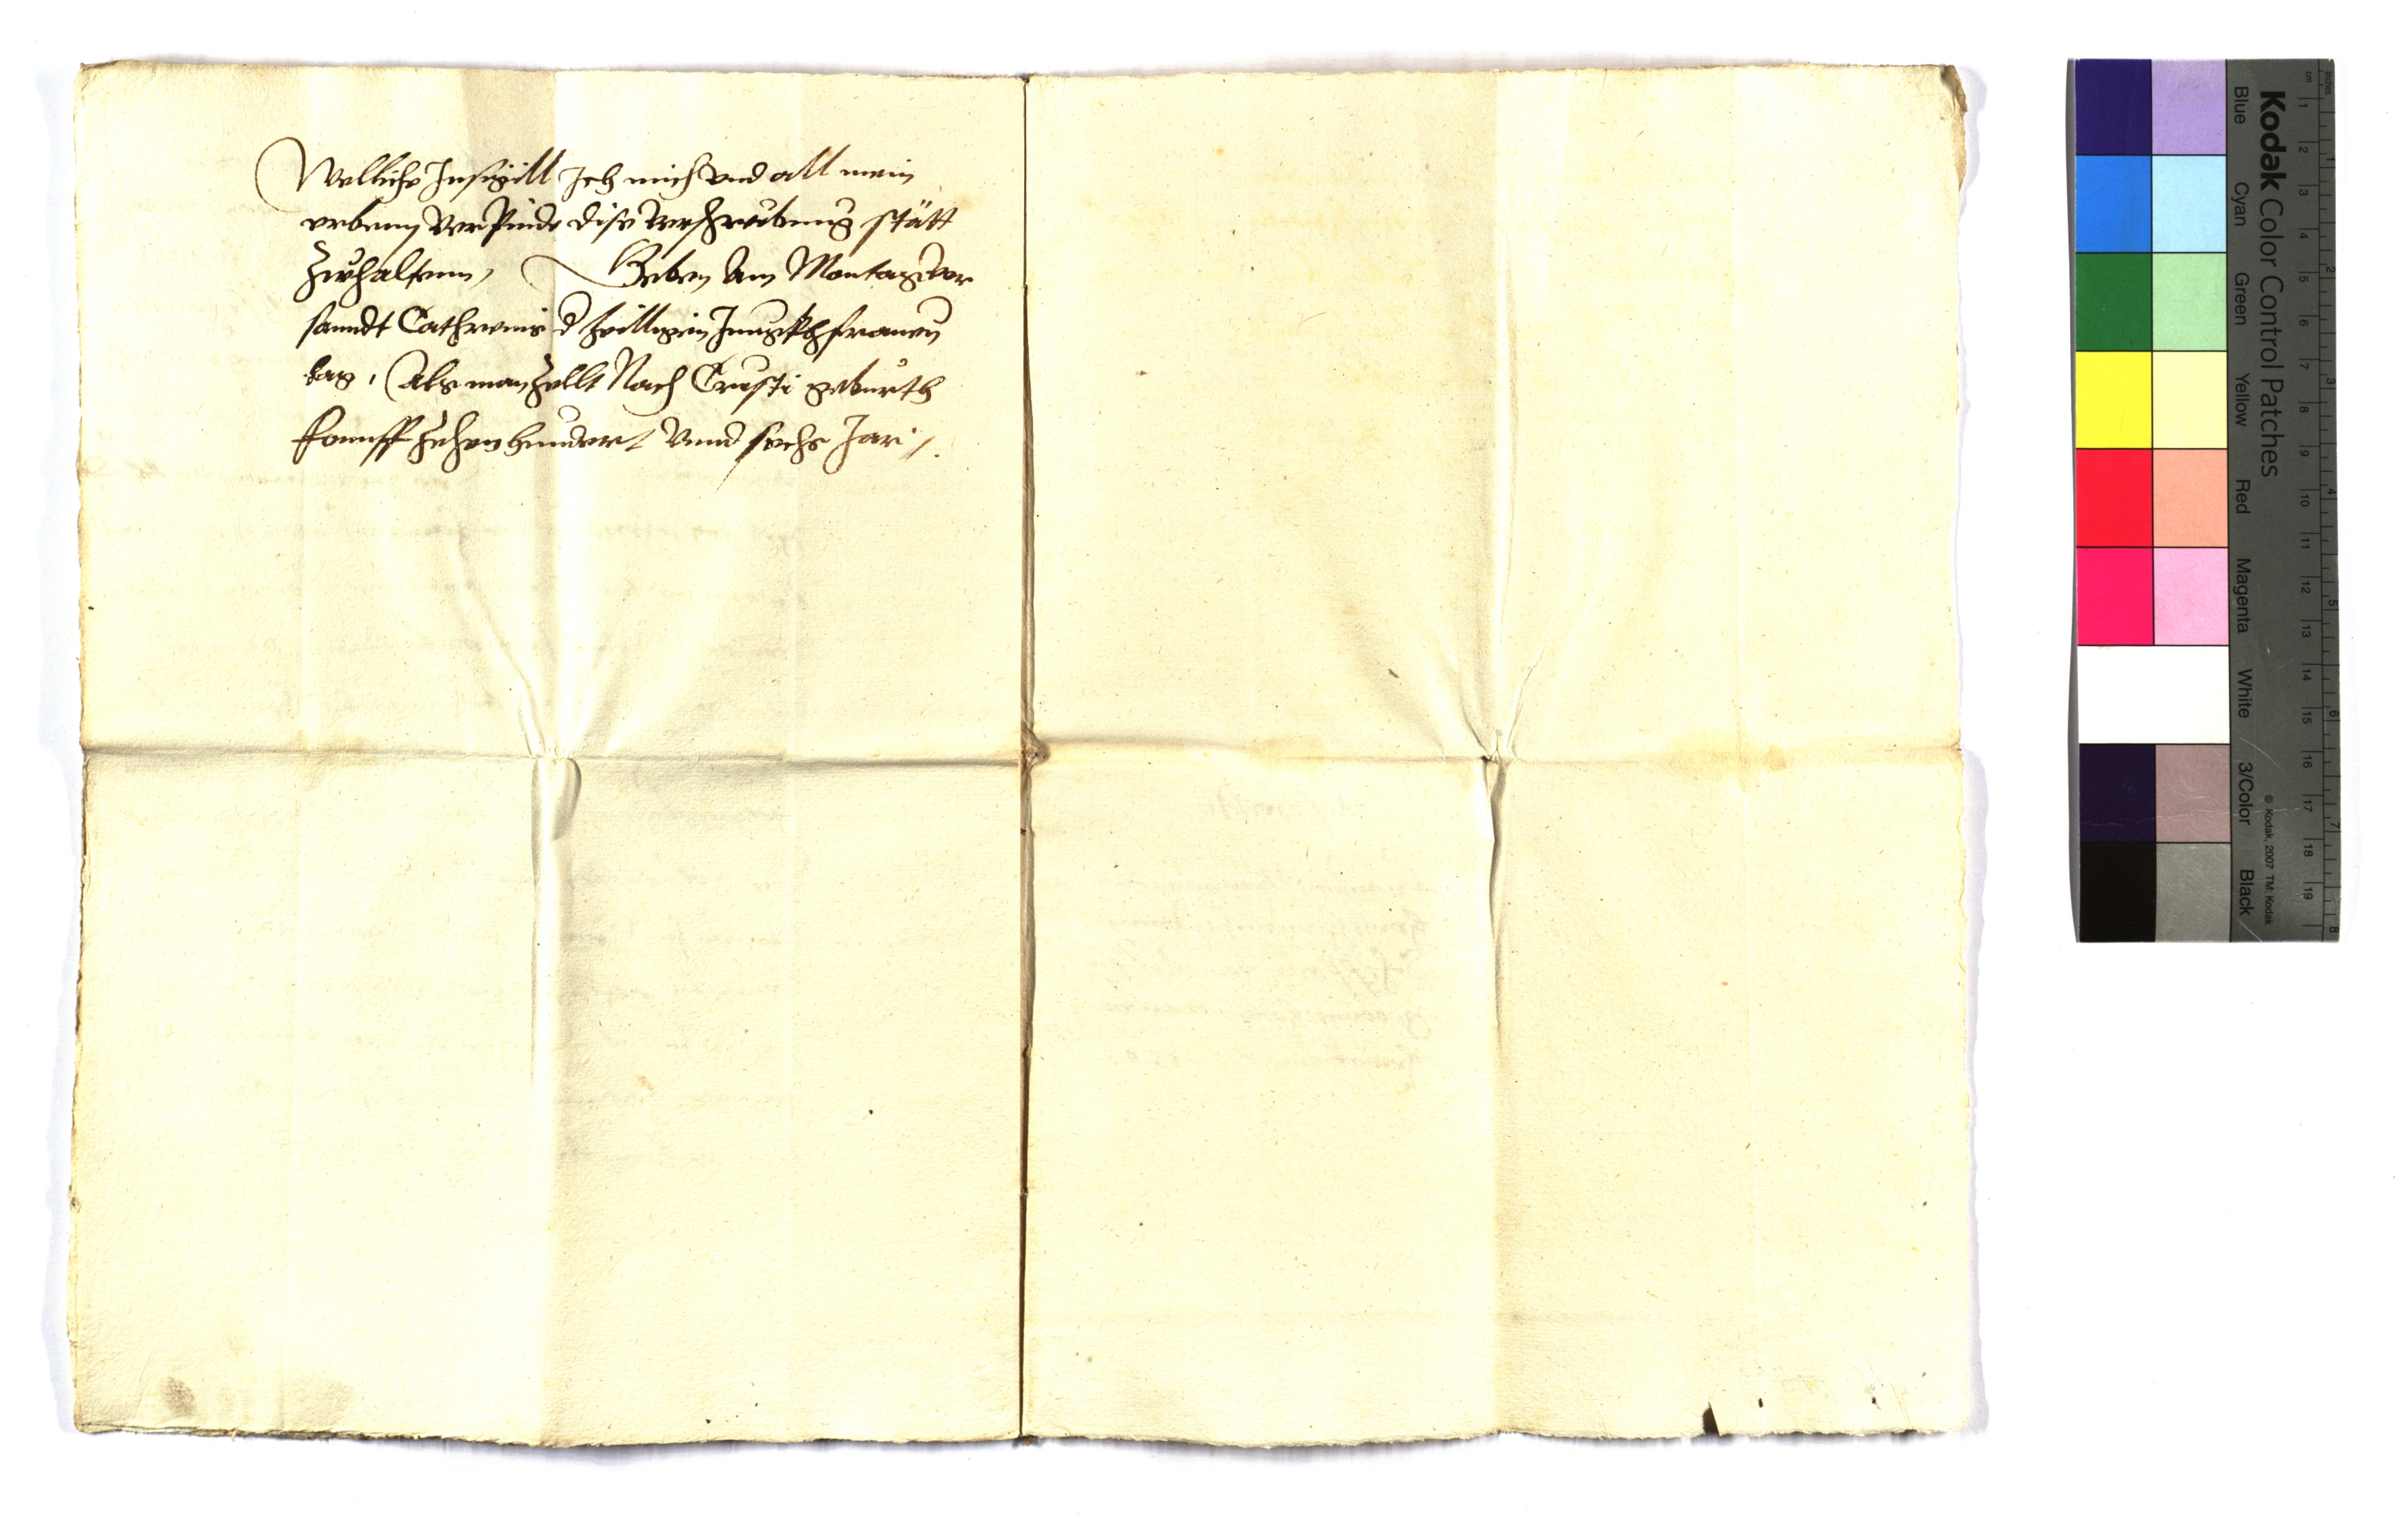 Welliche Insigill Ich mich vnd all mein
erbenn verpindt dise verschreibung stätt
Zuhaltenn, Geben Am Montag vor
sanndt Cathreinis d heilligein Junngkhfrauen
tag, Als man Zellt Nach Cristi geburth
fonnff Zehen hundert Vnnd sechs Jar /.
Kodak Color Control Patches
Blue Cyan Green Yellow Red Magenta White 3/Color Black
© Kodak, 2007 TM: Kodak
cm 1 2 3 4 5 6 7 8 9 10 11 12 13 14 15 16 17 18 19
inches 1 2 3 4 5 6 7 8